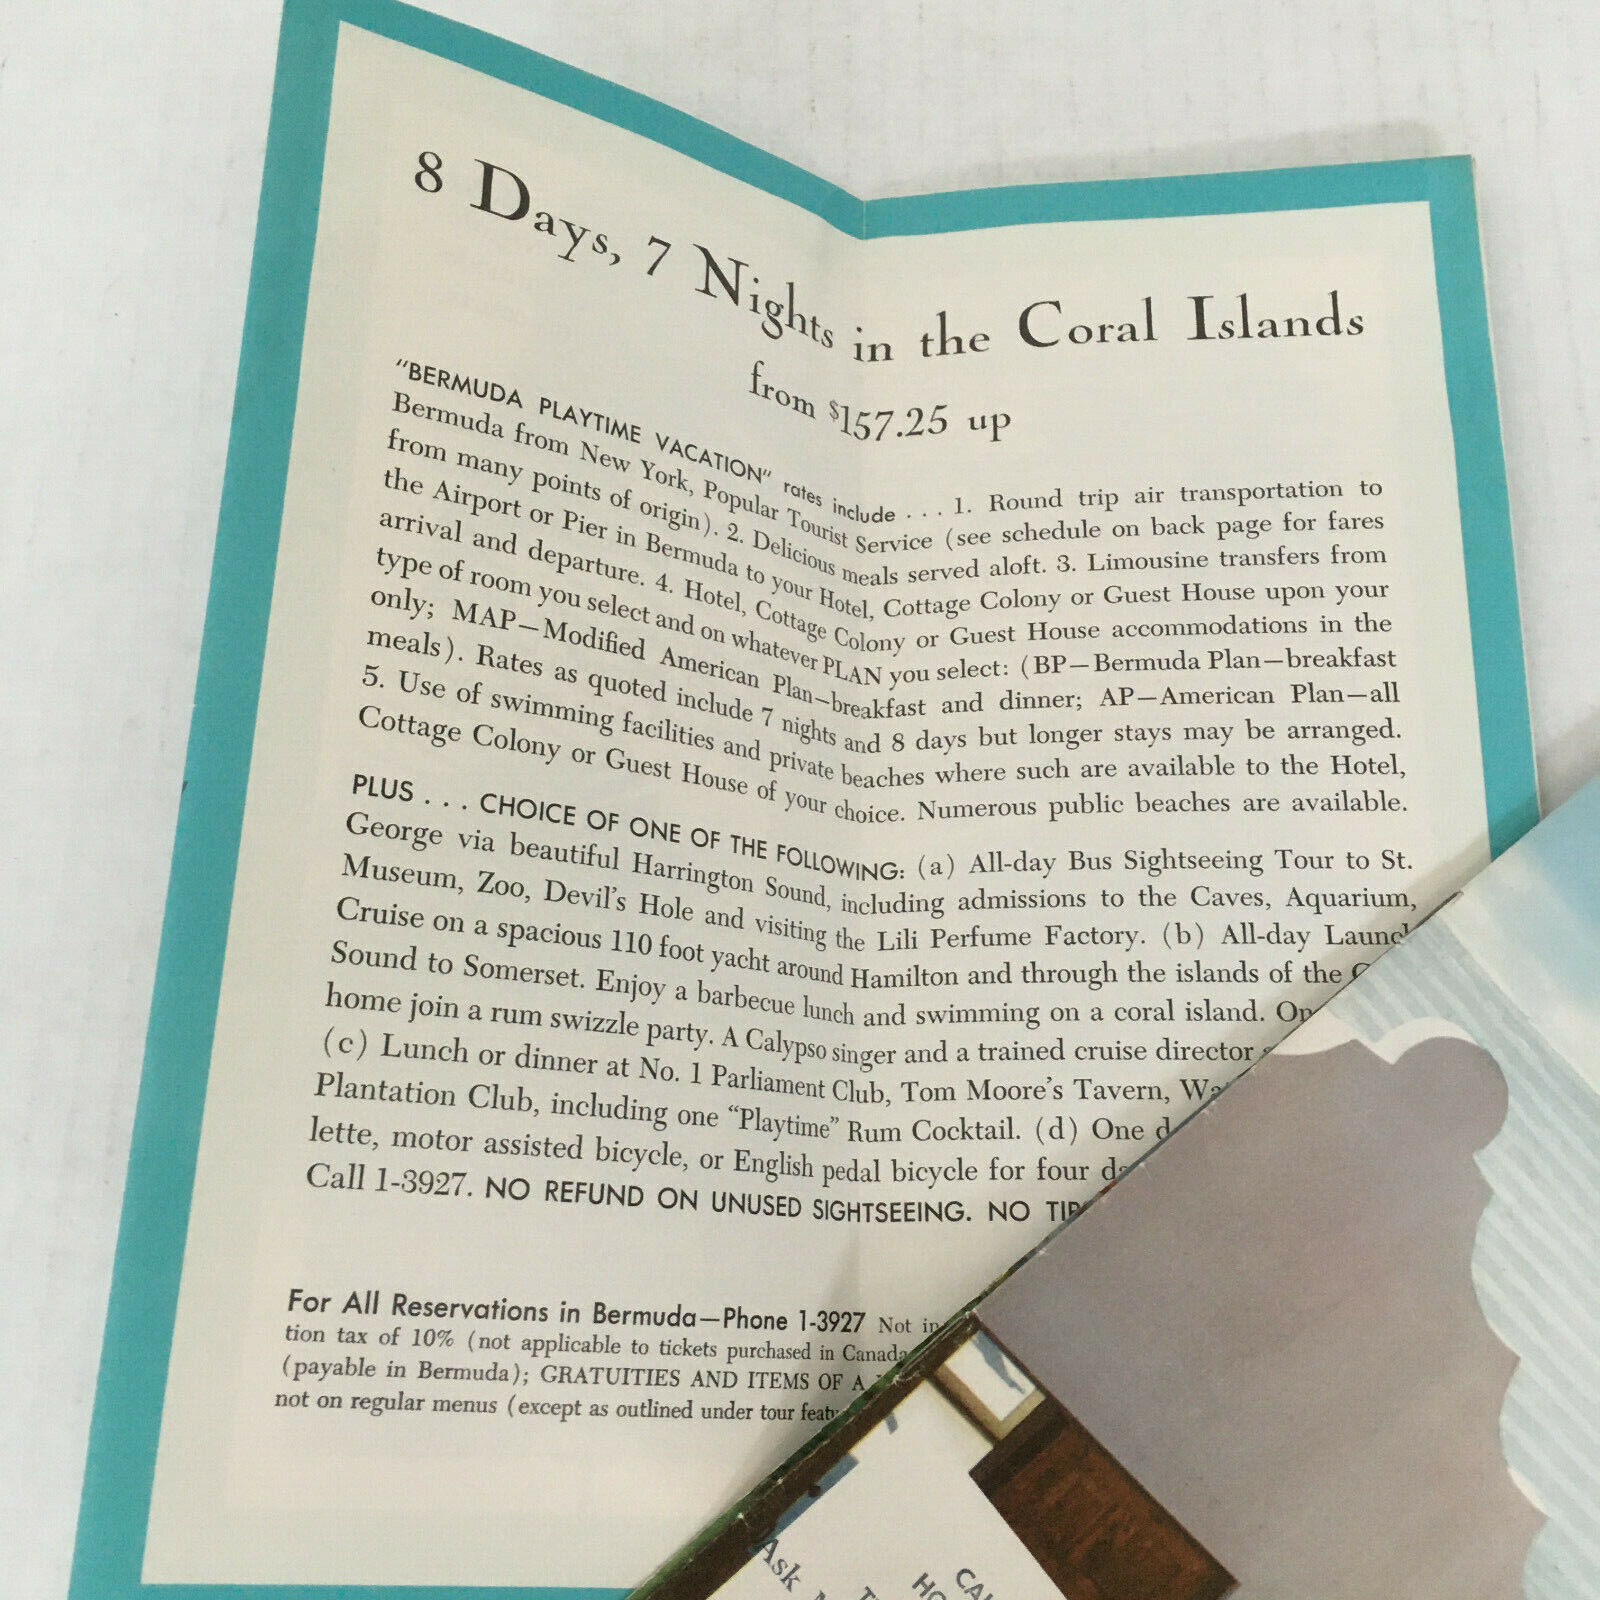 8 Days, 7 Nights in the Coral Islands
from $157.25 up
"BERMUDA PLAYTIME VACATION" rates include . . . 1. Round trip air transportation to
Bermuda from New York, Popular Tourist Service (see schedule on back page for fares
from many points of origin). 2. Delicious meals served aloft. 3. Limousine transfers from
the Airport or Pier in Bermuda to your Hotel, Cottage Colony or Guest House upon your
arrival and departure. 4. Hotel, Cottage Colony or Guest House accommodations in the
type of room you select and on whatever PLAN you select: (BP—Bermuda Plan—breakfast
only; MAP—Modified American Plan—breakfast and dinner; AP—American Plan—all
meals). Rates as quoted include 7 nights and 8 days but longer stays may be arranged.
5. Use of swimming facilities and private beaches where such are available to the Hotel,
Cottage Colony or Guest House of your choice. Numerous public beaches are available.
PLUS . . . CHOICE OF ONE OF THE FOLLOWING: (a) All-day Bus Sightseeing Tour to St.
George via beautiful Harrington Sound, including admissions to the Caves, Aquarium,
Museum, Zoo, Devil's Hole and visiting the Lili Perfume Factory. (b) All-day Launch
Cruise on a spacious 110 foot yacht around Hamilton and through the islands of the
Sound to Somerset. Enjoy a barbecue lunch and swimming on a coral island. On
home join a rum swizzle party. A Calypso singer and a trained cruise director
(c) Lunch or dinner at No. 1 Parliament Club, Tom Moore's Tavern,
Plantation Club, including one "Playtime" Rum Cocktail. (d) One
lette, motor assisted bicycle, or English pedal bicycle for four
Call 1-3927. NO REFUND ON UNUSED SIGHTSEEING. NO
For All Reservations in Bermuda—Phone 1-3927 Not
tion tax of 10% (not applicable to tickets purchased in Canada
(payable in Bermuda); GRATUITIES AND ITEMS OF A
not on regular menus (except as outlined under tour
Ask